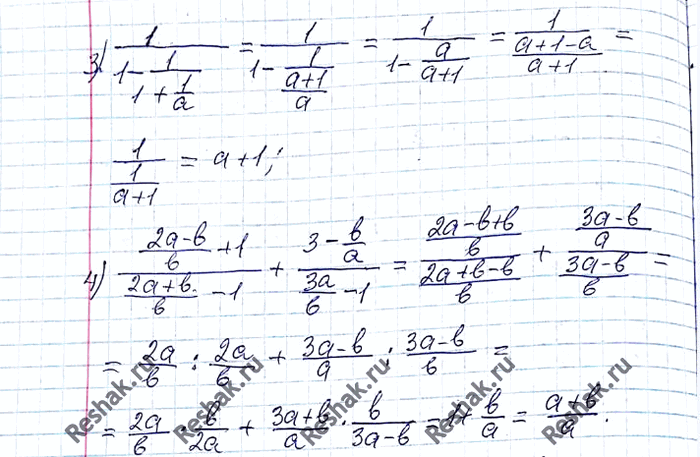 3) \frac{1}{1-\frac{1}{1+\frac{1}{a}}} = \frac{1}{1-\frac{1}{\frac{a+1}{a}}} = \frac{1}{1-\frac{a}{a+1}} = \frac{1}{\frac{a+1-a}{a+1}} =
\frac{1}{\frac{1}{a+1}} = a+1;
4) \frac{\frac{2a-b}{b}+1}{\frac{2a+b}{b}-1} + \frac{3-\frac{b}{a}}{\frac{3a}{b}-1} = \frac{\frac{2a-b+b}{b}}{\frac{2a+b-b}{b}} + \frac{\frac{3a-b}{a}}{\frac{3a-b}{b}} =
= \frac{2a}{b} : \frac{2a}{b} + \frac{3a-b}{a} : \frac{3a-b}{b} =
= \frac{2a}{b} \cdot \frac{b}{2a} + \frac{3a+b}{a} \cdot \frac{b}{3a-b} = 1+\frac{b}{a} = \frac{a+b}{a}.
Reshak.ru Reshak.ru Reshak.ru Reshak.ru Reshak.ru